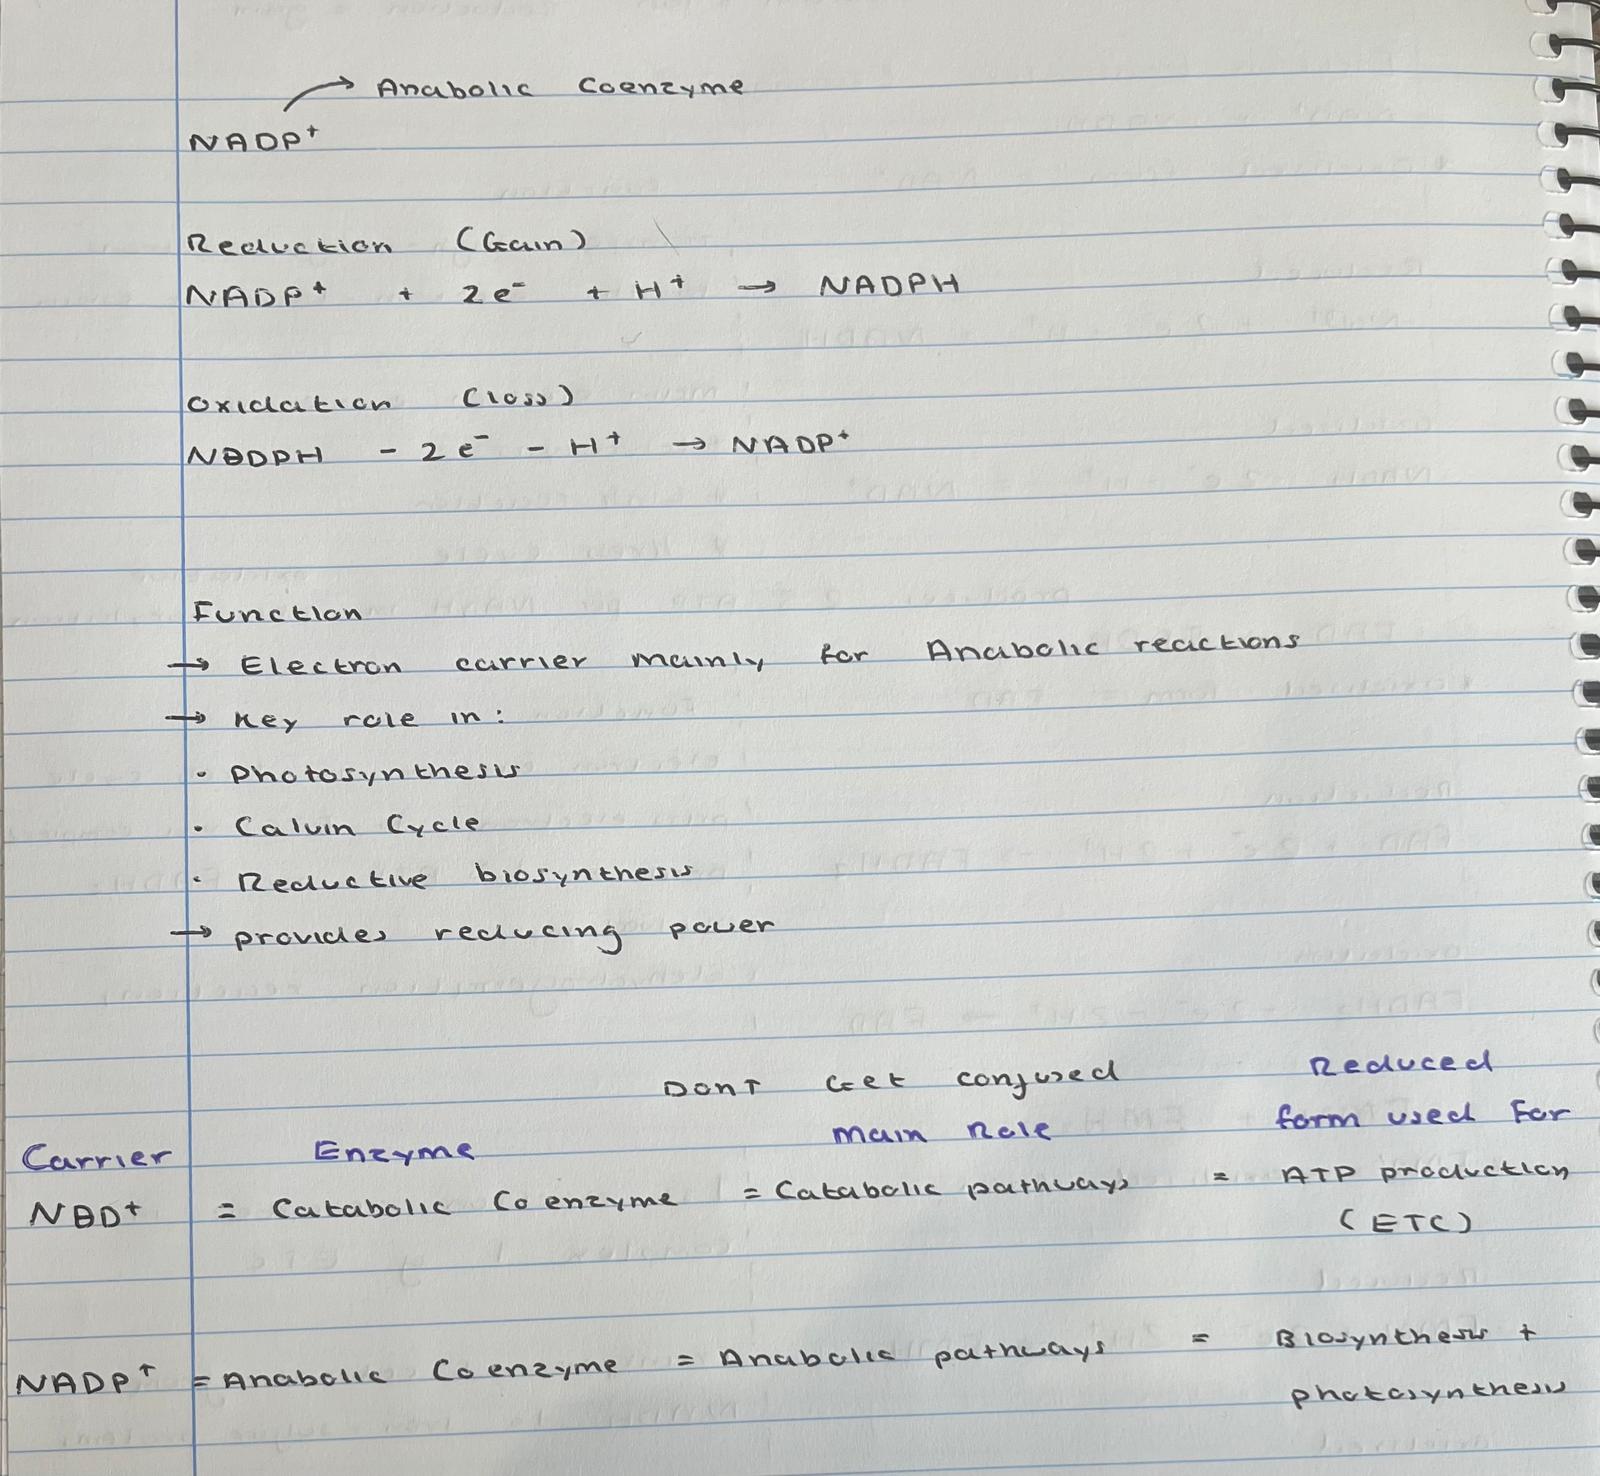 → Anabolic Coenzyme
NADP⁺
Reduction (Gain)
NADP⁺ + 2e⁻ + H⁺ → NADPH
Oxidation (loss)
NADPH - 2e⁻ - H⁺ → NADP⁺
Function
→ Electron carrier mainly for Anabolic reactions
→ Key role in:
· Photosynthesis
· Calvin Cycle
· Reductive biosynthesis
→ provides reducing power
Dont Get confused
Carrier Enzyme main Role Reduced form used For
NAD⁺ = Catabolic Coenzyme = Catabolic pathways = ATP production
(ETC)
NADP⁺ = Anabolic Coenzyme = Anabolic pathways = Biosynthesis +
photosynthesis